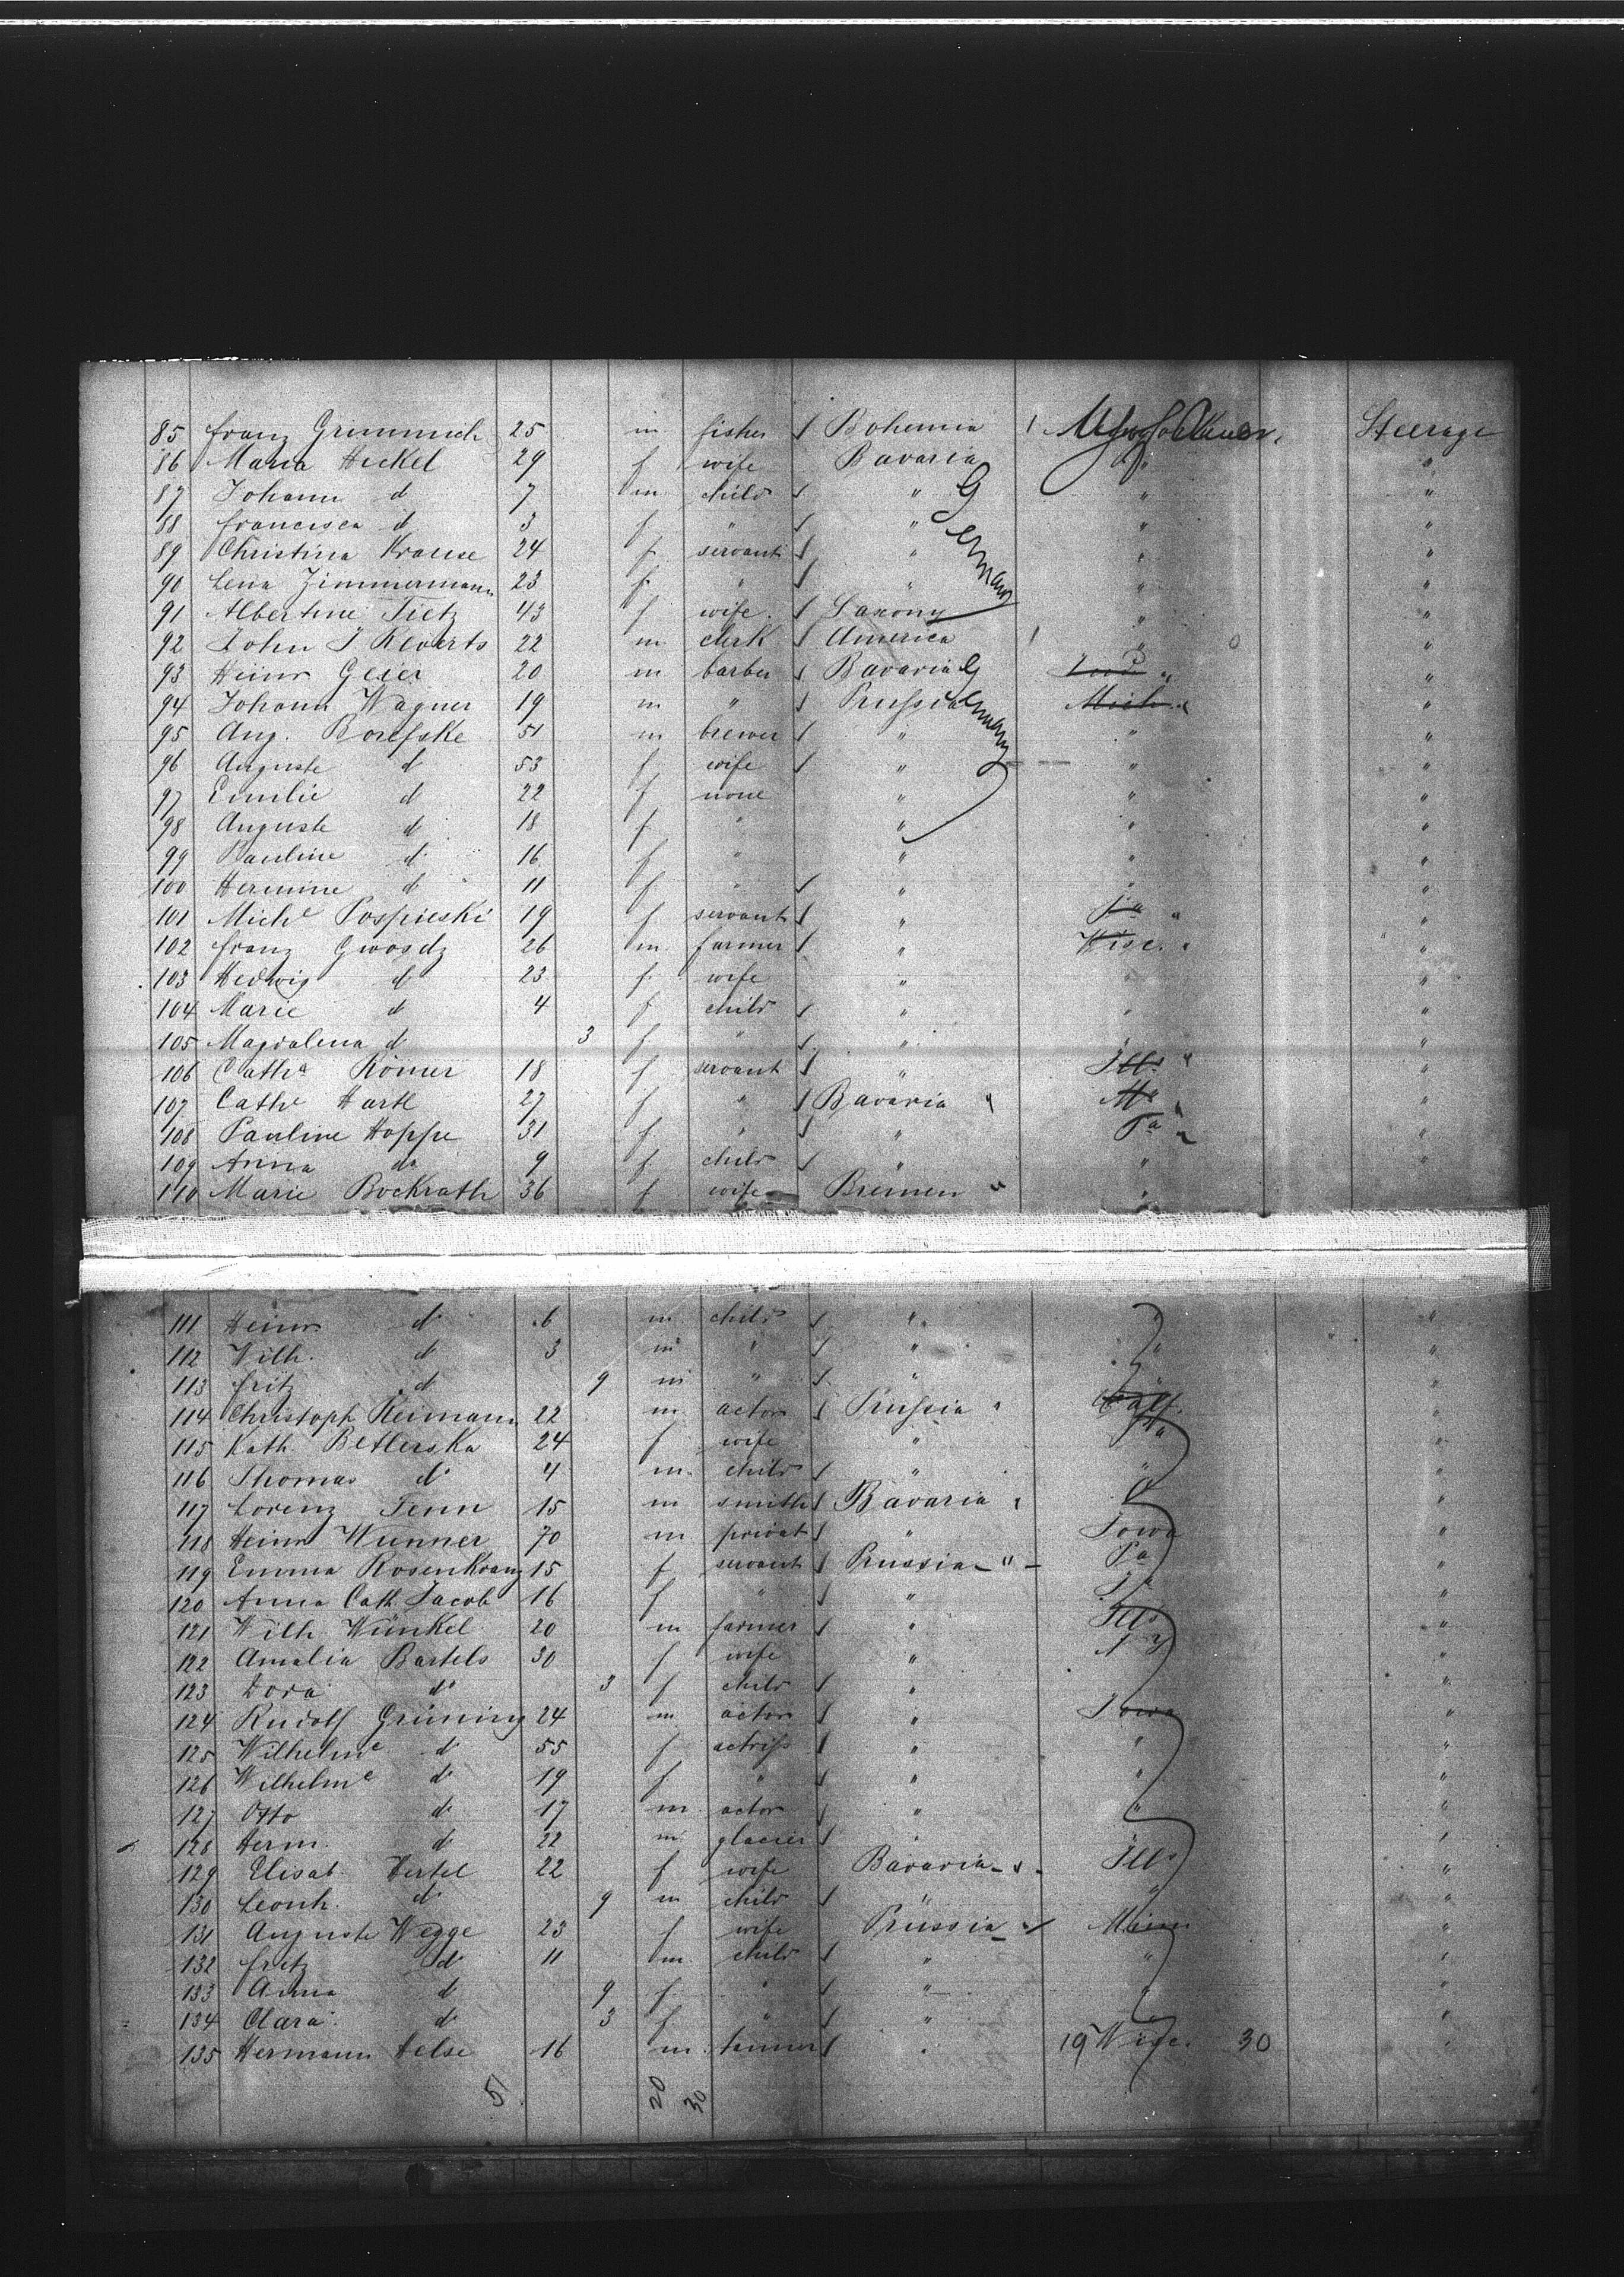 85 Franz Grimmich 25 m fisher Bohemia 1 Steerage
86 Maria Heckel 29 f wife Bavaria "
87 Johann d 7 m child " " "
88 Francisca d 3 f " " " "
89 Christina Krause 24 f servant " " "
90 Lena Zimmermann 23 f " " " "
91 Albertine Tietz 43 f wife Saxony " "
92 John J Reverts 22 m clerk America 1 " 0 "
93 Heinr Geier 20 m barber Bavaria "
94 Johann Wagner 19 m " Prussia Mich "
Germany
Germany
95 Aug. Borefske 51 m brewer " " "
96 Auguste d 53 f wife " " "
97 Emilie d 22 f none " " "
98 Auguste d 18 f " " " "
99 Pauline d 16 f " " " "
100 Hermine d 11 f " " " "
101 Miche Pospieski 19 f servant " "
102 Franz Gwosdz 26 m farmer " Wisc. "
103 Hedwig d 23 f wife " " "
104 Marie d 4 f child " " "
105 Magdalena d 3 f " " " "
106 Catha Römer 18 f servant " Ills "
107 Cathe Hartl 27 f " Bavaria " "
108 Pauline Hoppe 31 f " " Pa "
109 Anna do 9 f child " " "
110 Marie Bockrath 36 f wife Bremen " " "
111 Heinr d 6 m child " " "
112 Wilh. d 3 m " " " "
113 Fritz d 9 m " " " "
114 Christoph Reimann 22 m actor Prussia " Calf. "
115 Kath. Betlerska 24 f wife " Pa "
116 Thomas d 4 m child " " "
117 Lorenz Fenn 15 m smith Bavaria " "
118 Heinr Wunner 70 m privat " Iowa "
119 Emma Rosenkranz 15 f servant Prussia - " - Pa "
120 Anna Cath. Jacob 16 f " " "
121 Wilh. Wünkel 20 m farmer " Ills "
122 Amalia Bartels 30 f wife " N Y "
123 Dora do 3 f child " "
124 Rudolf Grüning 24 m actor " Iowa "
125 Wilhelme d 55 f actriss " " "
126 Wilhelme d 19 f " " " "
127 Otto d 17 m actor " " "
128 Herm. d 22 m glacier " "
129 Elisab. Hertel 22 f wife Bavaria - " - Ills "
130 Leonh. d 9 m child " " "
131 Auguste Wegge 23 f wife Prussia Minn "
132 Fritz d 11 m child " " "
133 Anna d 9 f " " " "
134 Clara d 3 f " " " "
135 Hermann Helse 16 m tanner " 19 Wisc. 30 "
5 20 30